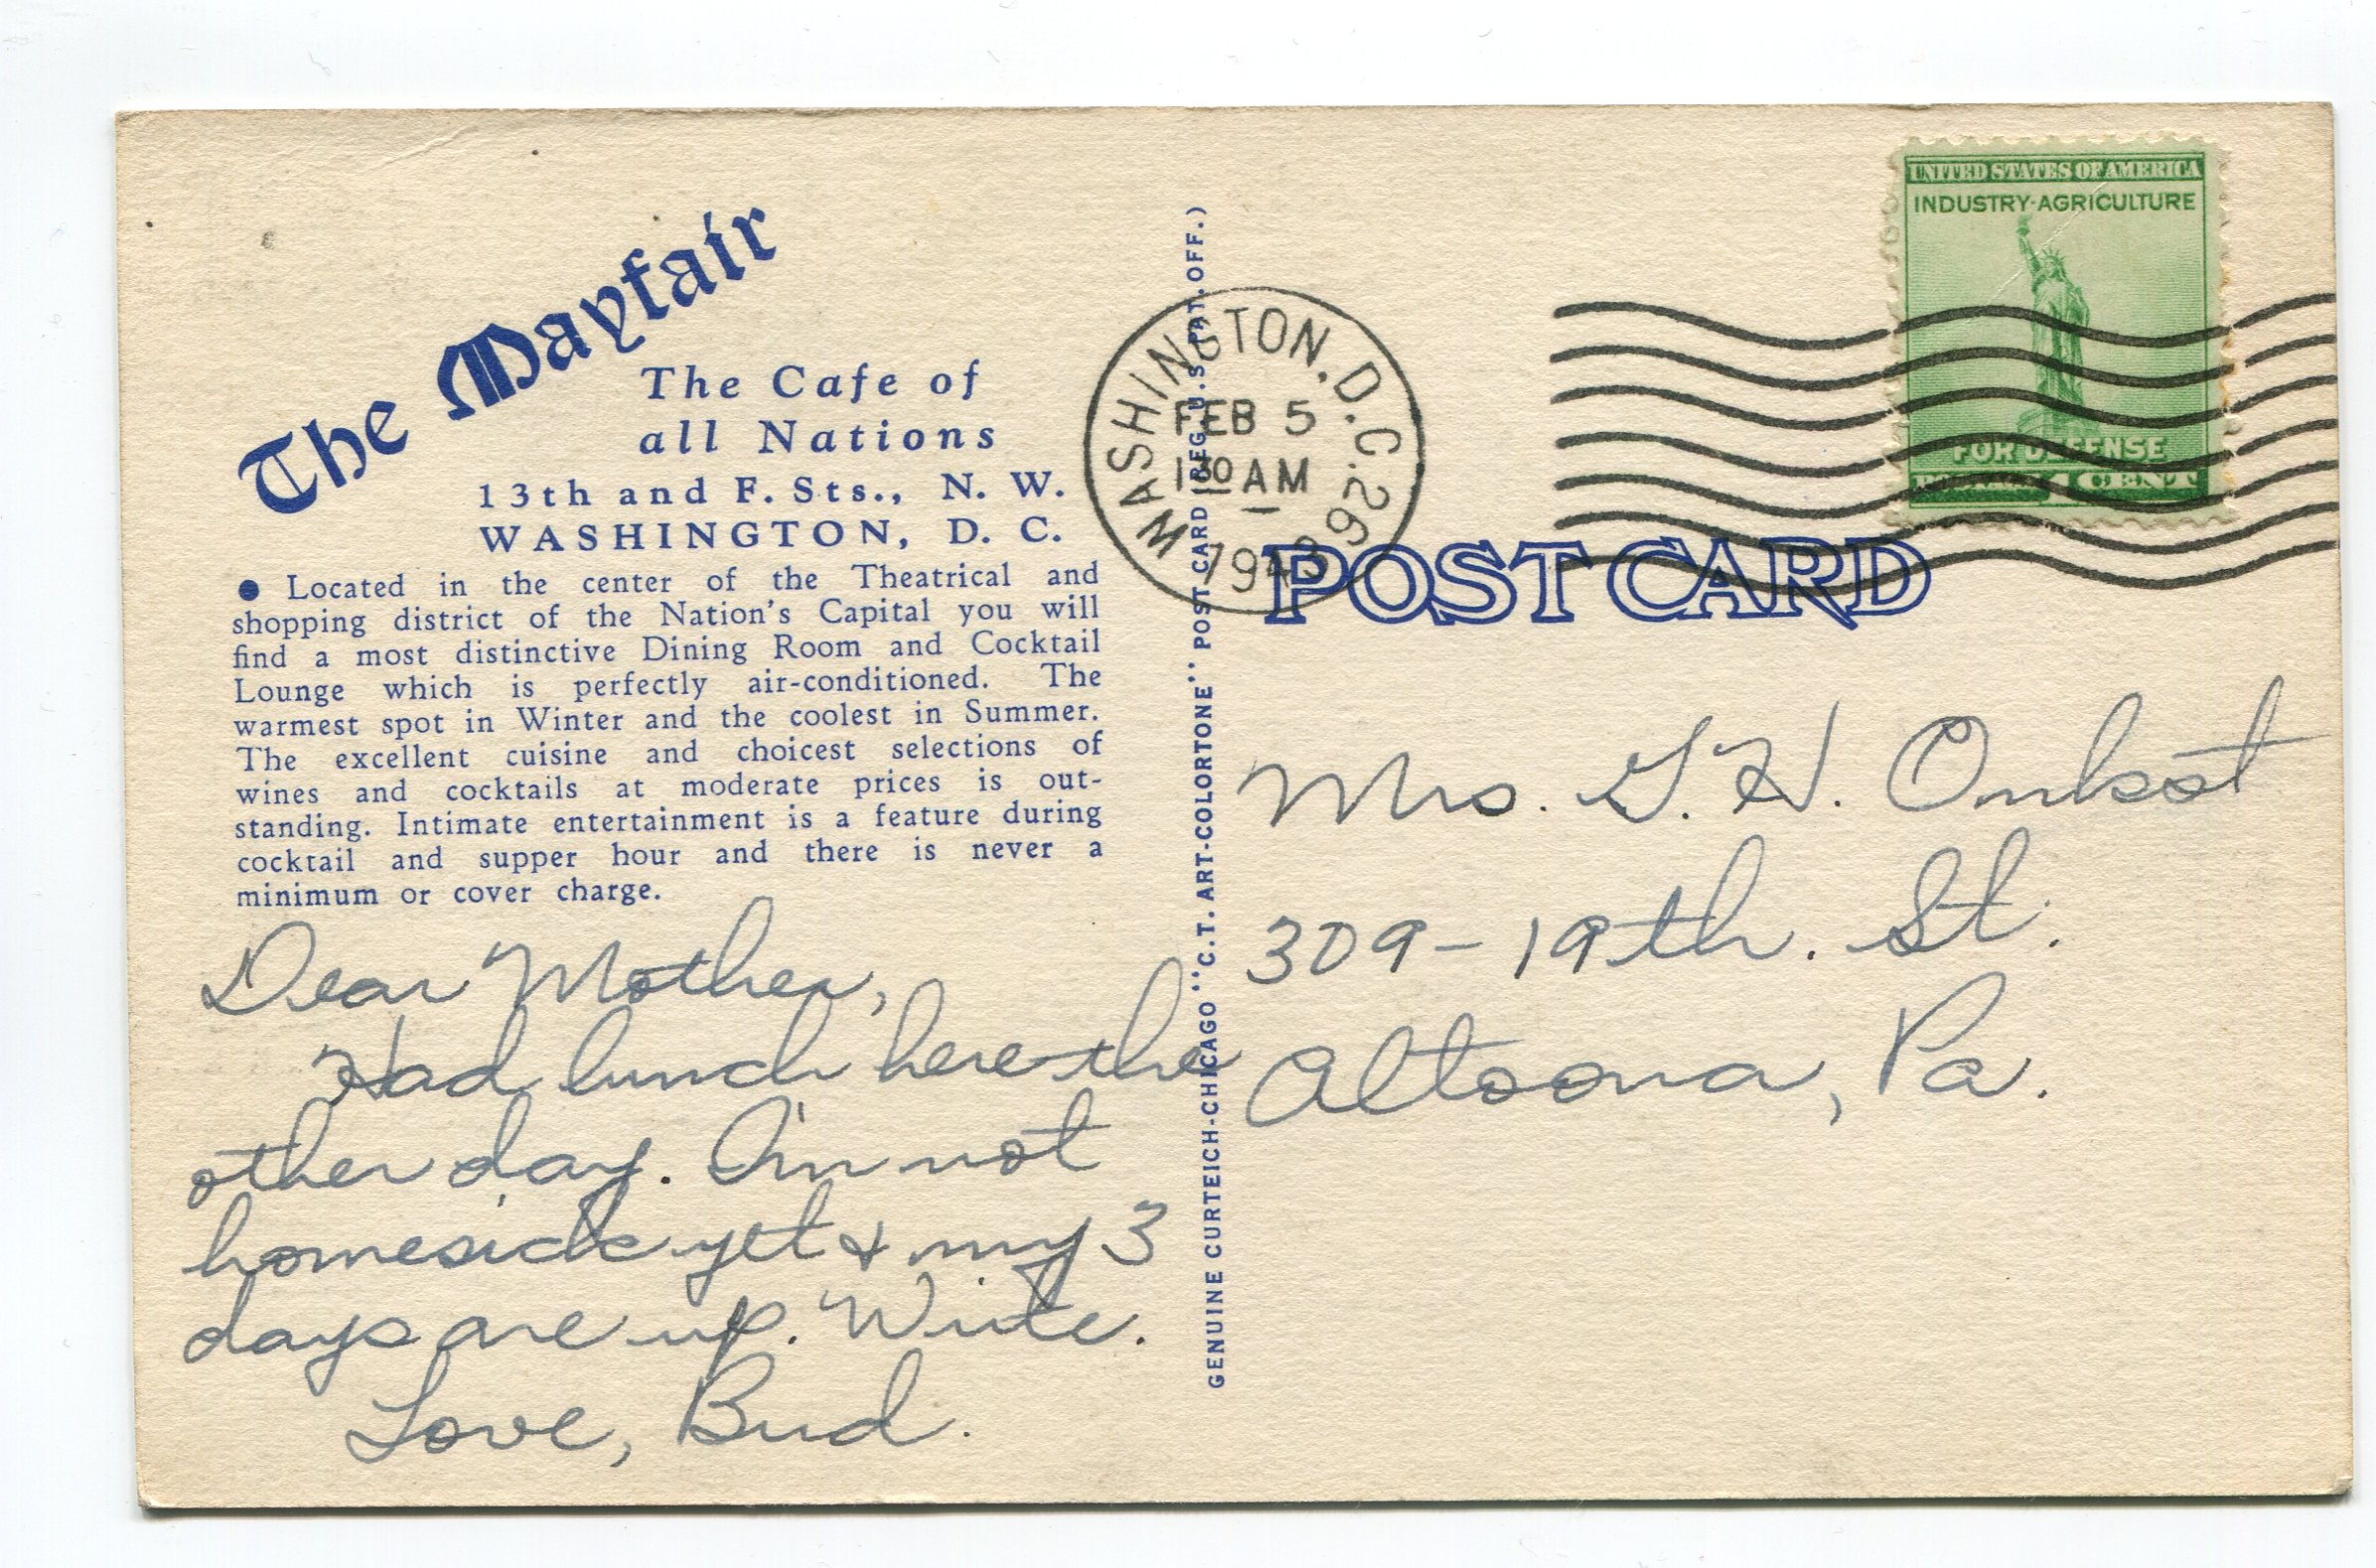 The Mayfair
The Cafe of
all Nations
13th and F. Sts., N. W.
WASHINGTON, D. C.
● Located in the center of the Theatrical and
shopping district of the Nation's Capital you will
find a most distinctive Dining Room and Cocktail
Lounge which is perfectly air-conditioned. The
warmest spot in Winter and the coolest in Summer.
The excellent cuisine and choicest selections of
wines and cocktails at moderate prices is out-
standing. Intimate entertainment is a feature during
cocktail and supper hour and there is never a
minimum or cover charge.
Dear Mother,
Had lunch here the
other day. I'm not
homesick yet & my 3
days are up. Write.
Love, Bud.
GENUINE CURTEICH-CHICAGO "C.T. ART-COLORTONE" POST CARD (REG. U.S. PAT. OFF.)
WASHINGTON, D.C. 26
FEB 5
AM
1943
UNITED STATES OF AMERICA
INDUSTRY·AGRICULTURE
FOR DEFENSE
POSTAGE 1 CENT
POST CARD
Mrs. G. H. Onkst
309-19th. St.
Altoona, Pa.